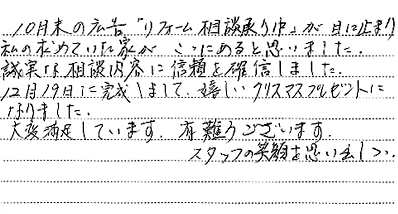 10月末の広告「リフォーム相談承り中」が目に止まり
私の求めていた家が ここにあると思いました.
誠実な相談内容に信頼を確信しました.
12月19日に完成しまして、嬉しいクリスマスプレゼントに
なりました.
大変満足しています. 有難うございます.
スタッフの笑顔を思い出しつつ.